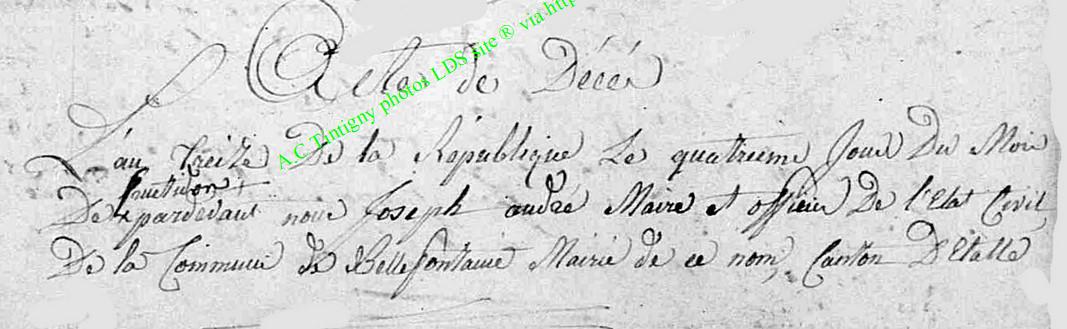 Acte de Décès
A.C Tintigny photos LDS site ® via http
L'an treize De la Republique Le quatrieme Jour Du Mois
fructidor
De pardevant nous Joseph andré Maire et officier De l'Etat Civil
De la Commune de Bellefontaine Mairie de ce nom, Canton D'Etalle